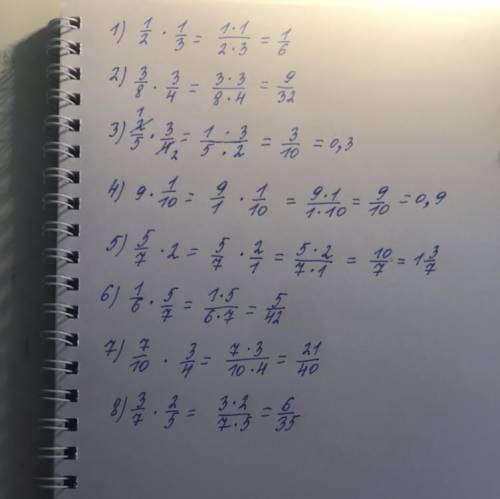 1) 1/2 · 1/3 = 1·1/2·3 = 1/6
2) 3/8 · 3/4 = 3·3/8·4 = 9/32
3) 2̸¹/5 · 3/4̸₂ = 1·3/5·2 = 3/10 = 0,3
4) 9 · 1/10 = 9/1 · 1/10 = 9·1/1·10 = 9/10 = 0,9
5) 5/7 · 2 = 5/7 · 2/1 = 5·2/7·1 = 10/7 = 1 3/7
6) 1/6 · 5/7 = 1·5/6·7 = 5/42
7) 7/10 · 3/4 = 7·3/10·4 = 21/40
8) 3/7 · 2/5 = 3·2/7·5 = 6/35